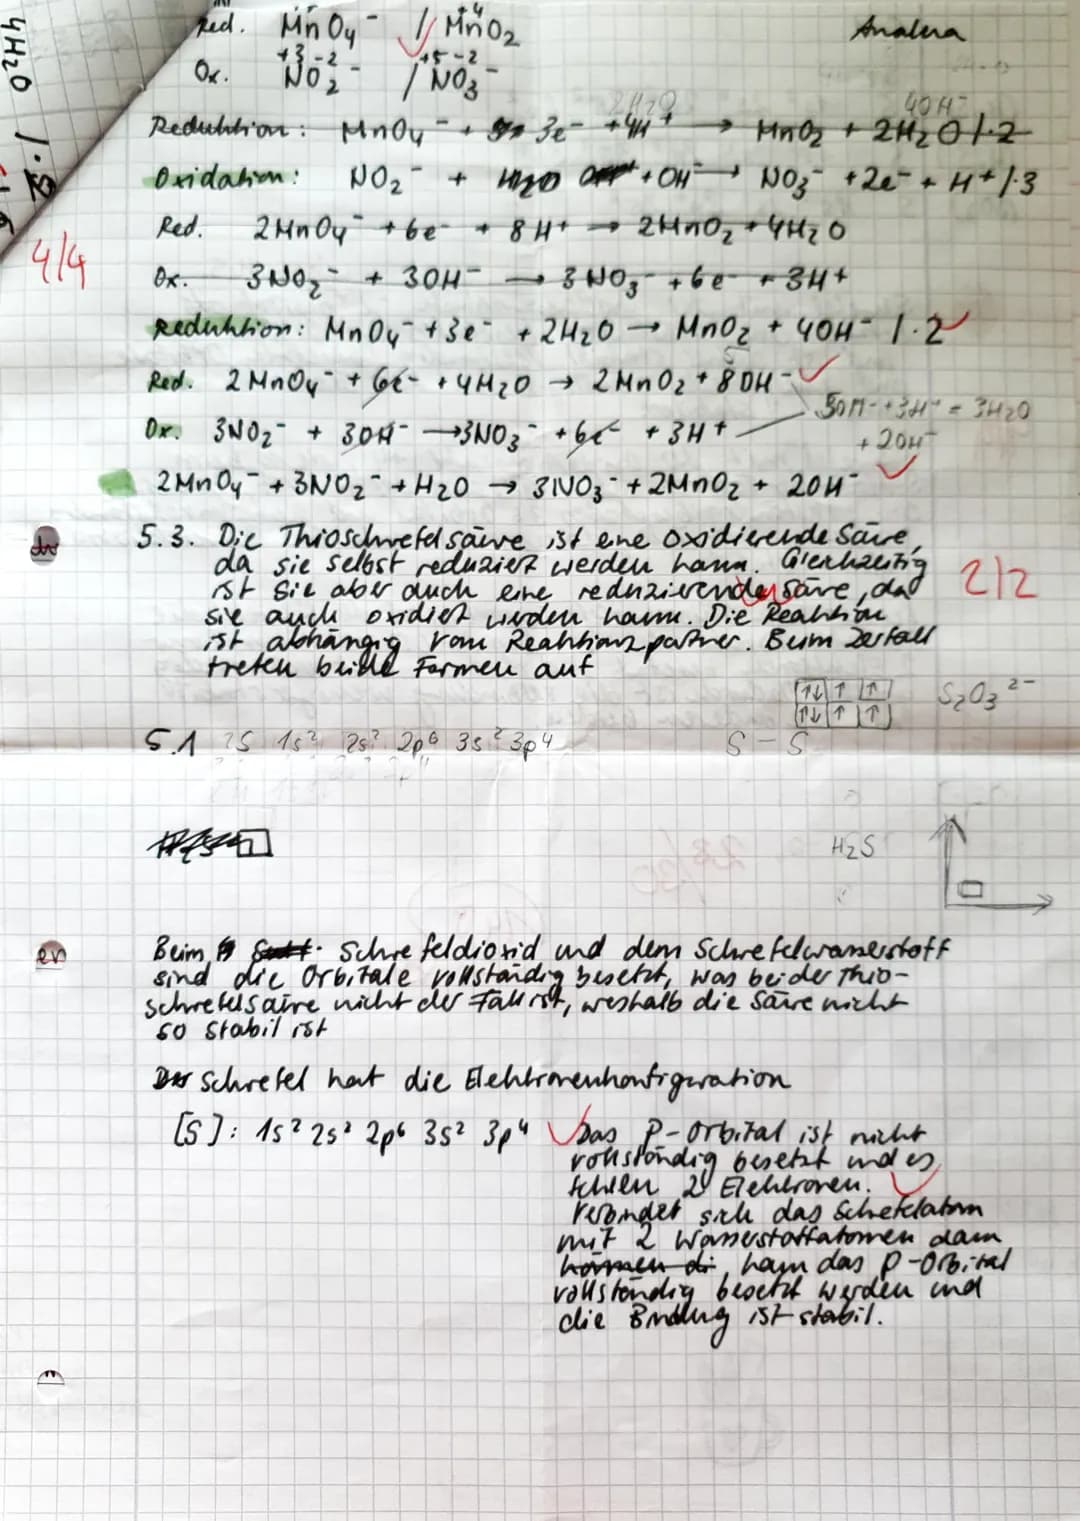 4H2O | · 2
Red. MnO4⁻ / MnO2
+4
+3 -2 +5 -2
Ox. NO2⁻ / NO3⁻
2H2O 4OH⁻
Reduktion: MnO4⁻ + 3e⁻ + 4H⁺ → MnO2 + 2H2O | · 2
Oxidation: NO2⁻ + + OH⁻ → NO3⁻ + 2e⁻ + H⁺ | · 3
Red. 2MnO4⁻ + 6e⁻ + 8H⁺ → 2MnO2 + 4H2O
4/4
Ox. 3NO2⁻ + 3OH⁻ → 3NO3⁻ + 6e⁻ + 3H⁺
Reduktion: MnO4⁻ + 3e⁻ + 2H2O → MnO2 + 4OH⁻ | · 2
5
Red. 2MnO4⁻ + 6e⁻ + 4H2O → 2MnO2 + 8OH⁻
3OH⁻ + 3H⁺ = 3H2O
Ox. 3NO2⁻ + 3OH⁻ → 3NO3⁻ + 6e⁻ + 3H⁺
+ 2OH⁻
2MnO4⁻ + 3NO2⁻ + H2O → 3NO3⁻ + 2MnO2 + 2OH⁻
5.3. Die Thioschwefelsäure ist eine oxidierende Säure,
da sie selbst reduziert werden kann. Gleichzeitig
ist sie aber auch eine reduzierende Säure, da
2/2
sie auch oxidiert werden kann. Die Reaktion
ist abhängig vom Reaktionspartner. Beim Zerfall
treten beide Formen auf
↑↓ ↑ ↑
S2O3²⁻
↑↓ ↑ ↑
5.1 S 1s² 2s² 2p⁶ 3s² 3p⁴ S – S
H2S
Beim Schwefeldioxid und dem Schwefelwasserstoff
sind die Orbitale vollständig besetzt, was bei der Thio-
schwefelsäure nicht der Fall ist, weshalb die Säure nicht
so stabil ist
Schwefel hat die Elektronenkonfiguration
[S]: 1s² 2s² 2p⁶ 3s² 3p⁴ Das P-Orbital ist nicht
vollständig besetzt und es
fehlen 2 Elektronen.
Verbindet sich das Schefelatom
mit 2 Wasserstoffatomen dann
können di, kann das p-Orbital
vollständig besetzt werden und
die Bindung ist stabil.